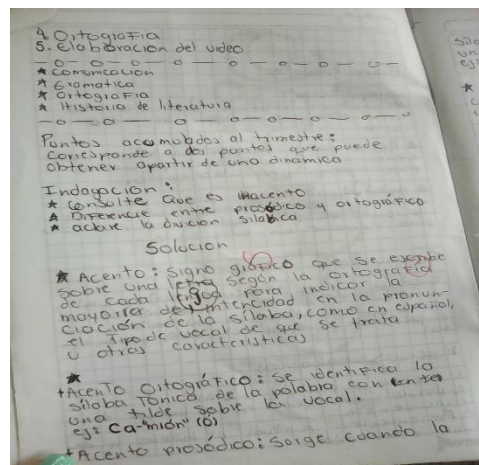 4. Ortografia
5. Elaboracion del video
- o - o - o - o - o - o - o - o -
★ comonicacion
★ Gramatica
★ ortografia
★ Historia de literatura
- o - o - o - o - o - o - o
Puntos acomulados al trimestre:
Corresponde a dos puntos que puede
obtener apartir de una dinamica
Indagacion:
★ consulte Que es acento
★ Diferencie entre prosódico y ortográfico
★ aclare la divicion silabica
Solucion
★ Acento: signo grafico que se escribe
sobre una letra según la ortografia
de cada para indicar la
mayor intercidad en la pronun-
ciación de la sílaba, como en español,
el tipo de vocal de que se trata
u otras caracteristicas
★
+ Acento ortográfico: se identifica la
sílaba Tónica de la palabra con
una tilde sobre la vocal.
ej: Ca-"mión" (o)
+ Acento prosódico: sorge cuando la